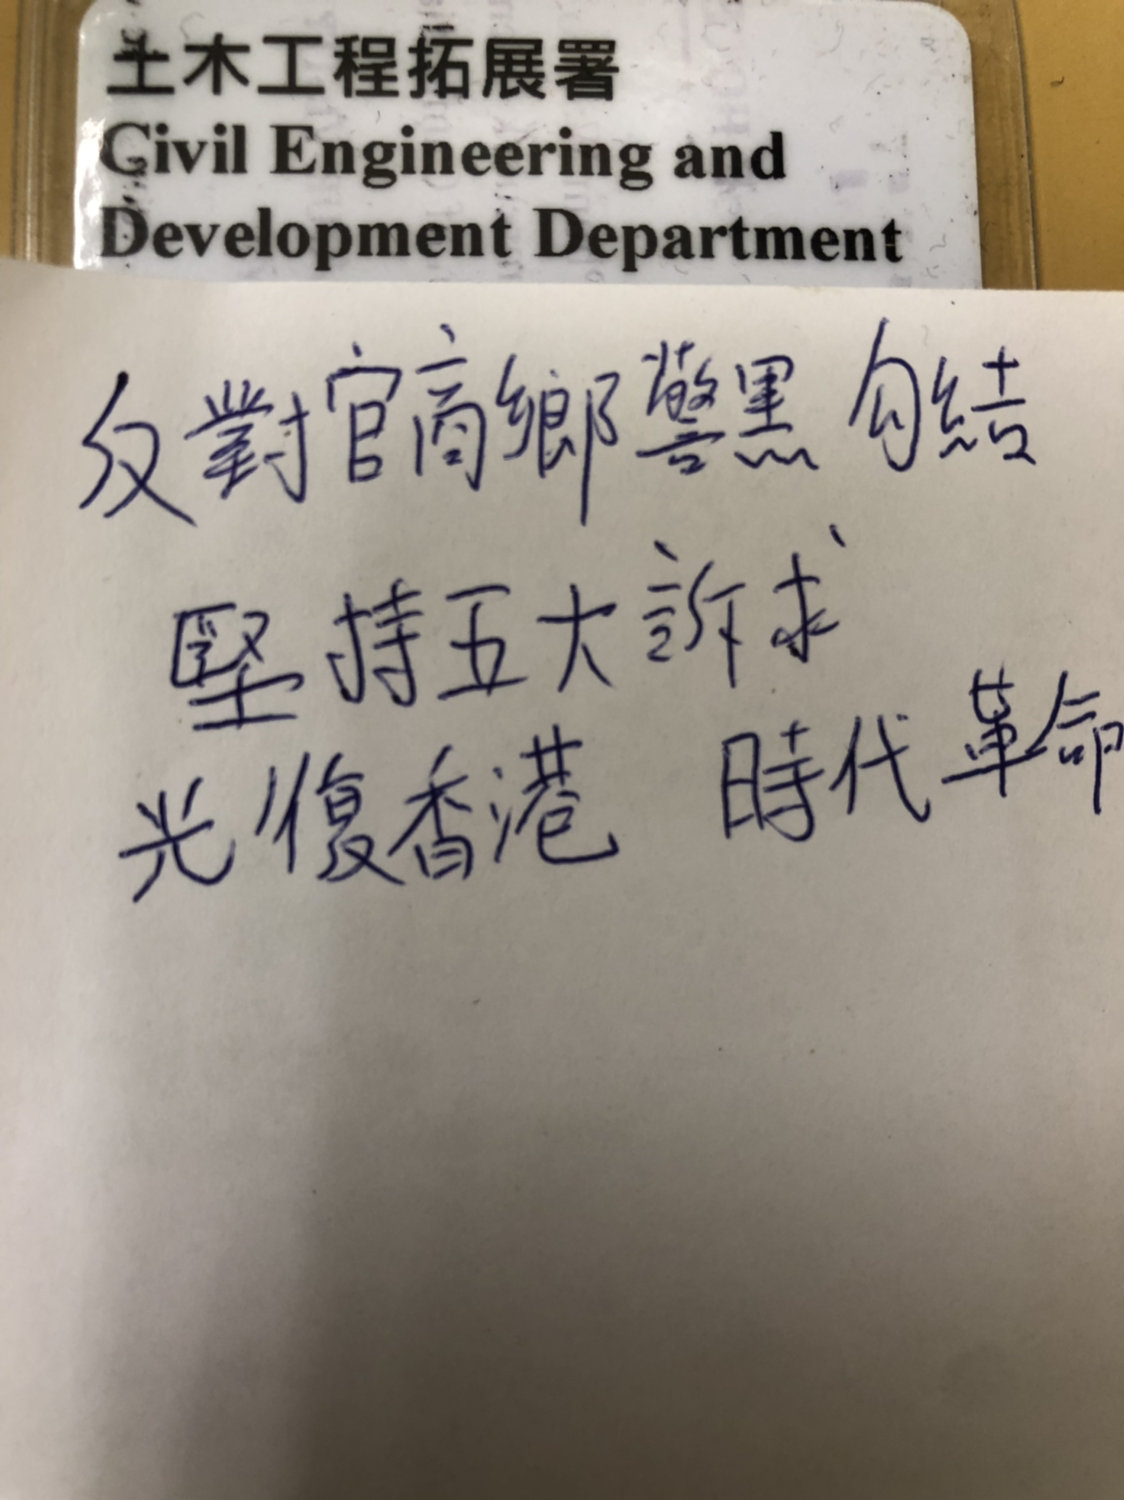 土木工程拓展署
Civil Engineering and
Development Department
反對官商鄉警黑勾結
堅持五大訴求
光復香港 時代革命